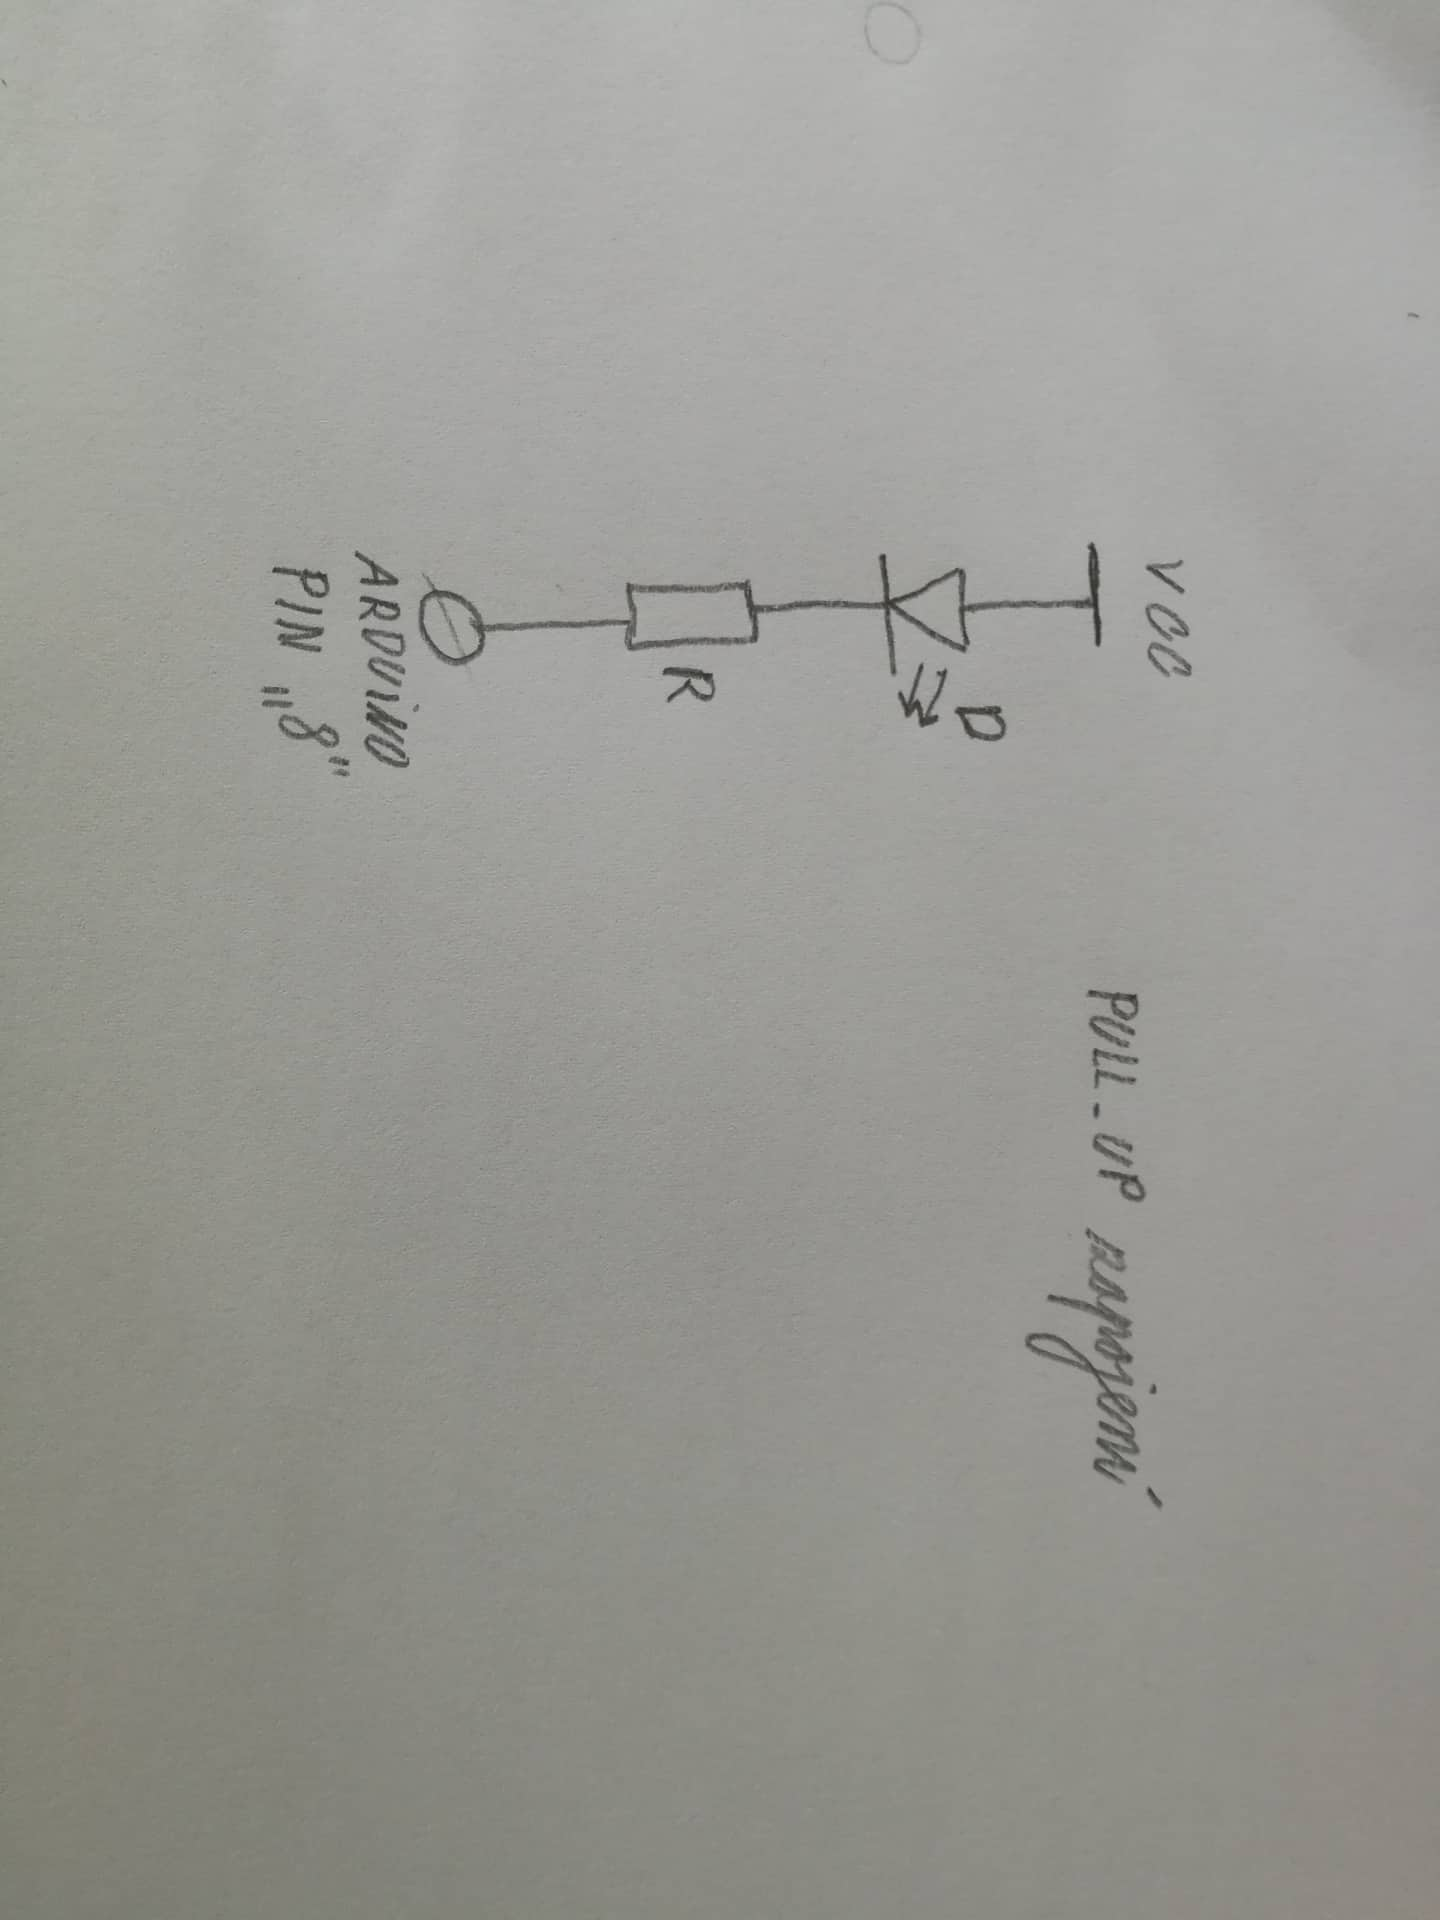 VCC
PULL-UP zapojení
D
R
ARDUINO
PIN „8"